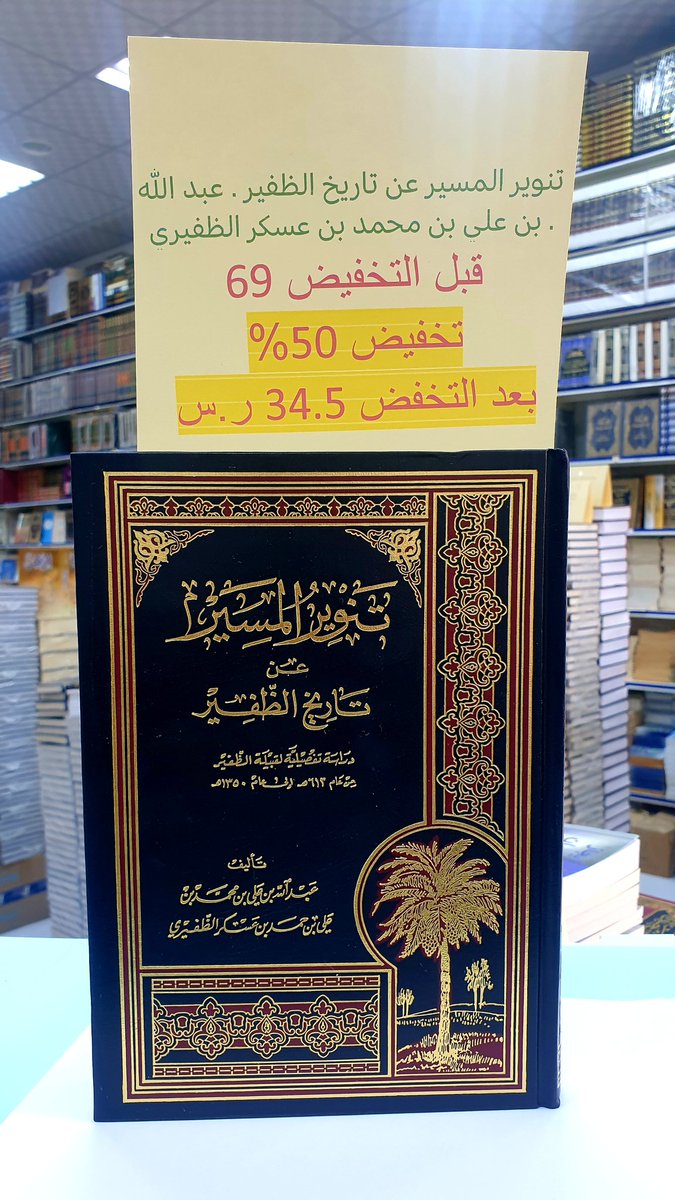 تنوير المسير عن تاريخ الظفير . عبد الله
بن علي بن محمد بن عسكر الظفيري .
قبل التخفيض 69
تخفيض 50%
بعد التخفض 34.5 ر.س
تَنْوِيرُ المَسِيْر
عَنْ
تَارِيخِ الظَّفِيْر
دراسة تفصيلية لقبيلة الظفير
من عام ٦١٢هـ إلى عام ١٣٥٠هـ
تأليف
عبد الله بن علي بن محمد بن
علي بن حمد بن عسكر الظفيري